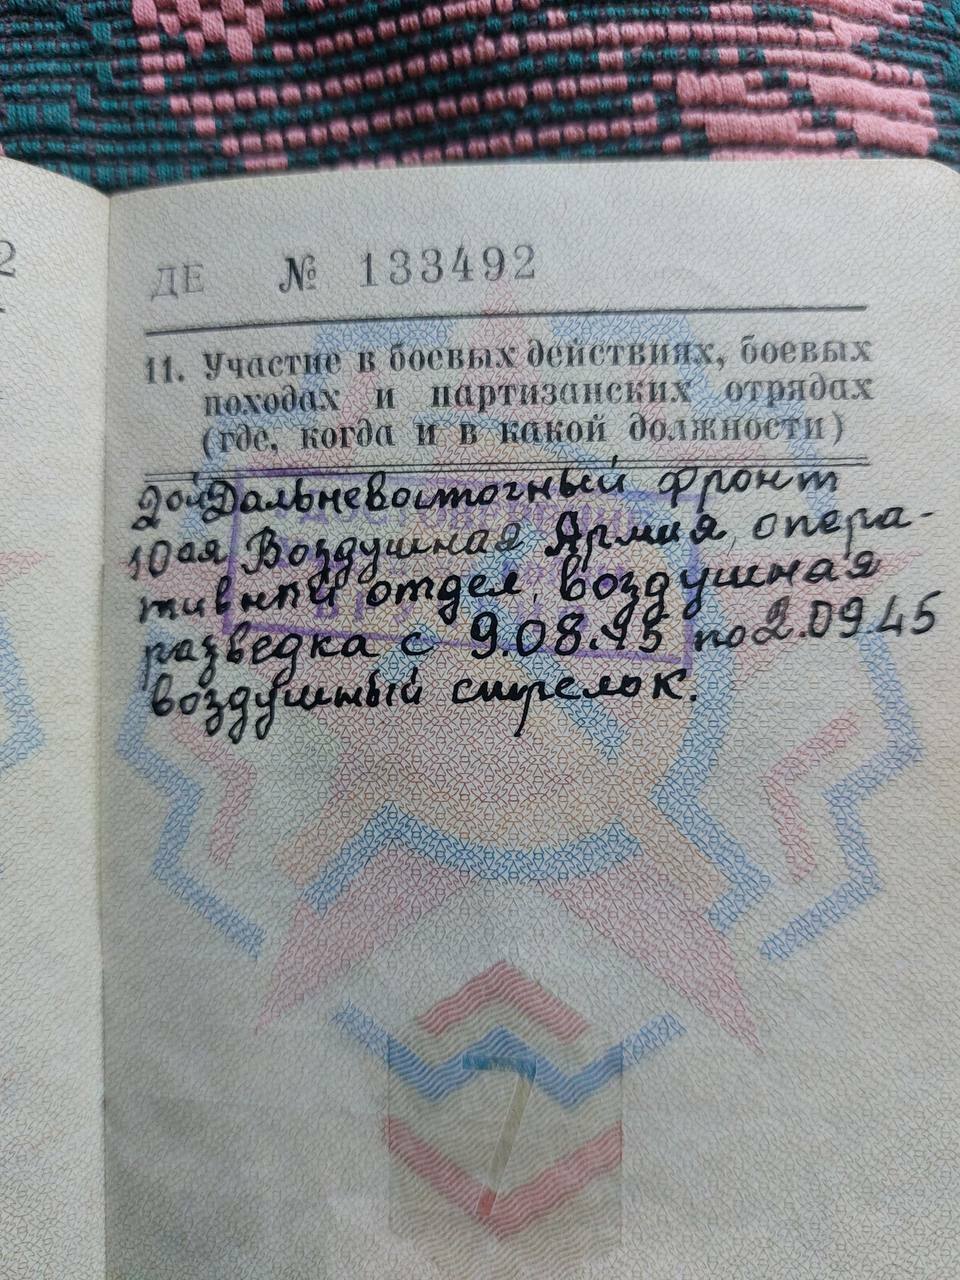 2
ДЕ № 133492
11. Участие в боевых действиях, боевых
походах и партизанских отрядах
(где, когда и в какой должности)
2ой Дальневосточный фронт
10ая Воздушная Армия, опера-
тивный отдел, воздушная
разведка с 9.08.45 по 2.09.45
воздушный стрелок.
7